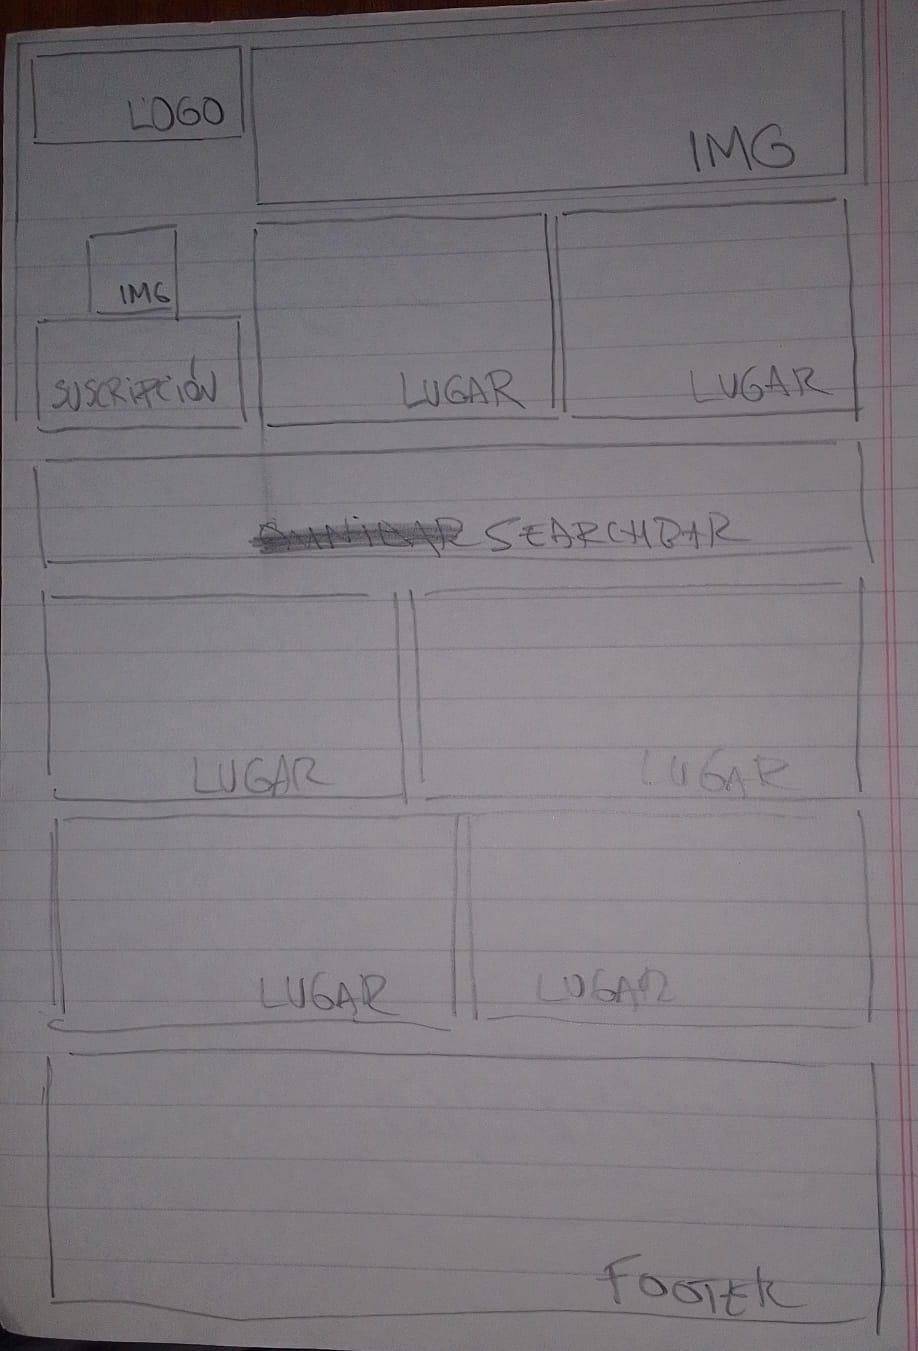 LOGO
IMG
IMG
SUSCRIPCIÓN
LUGAR
LUGAR
SEARCHBAR
LUGAR
LUGAR
LUGAR
LUGAR
FOOTER